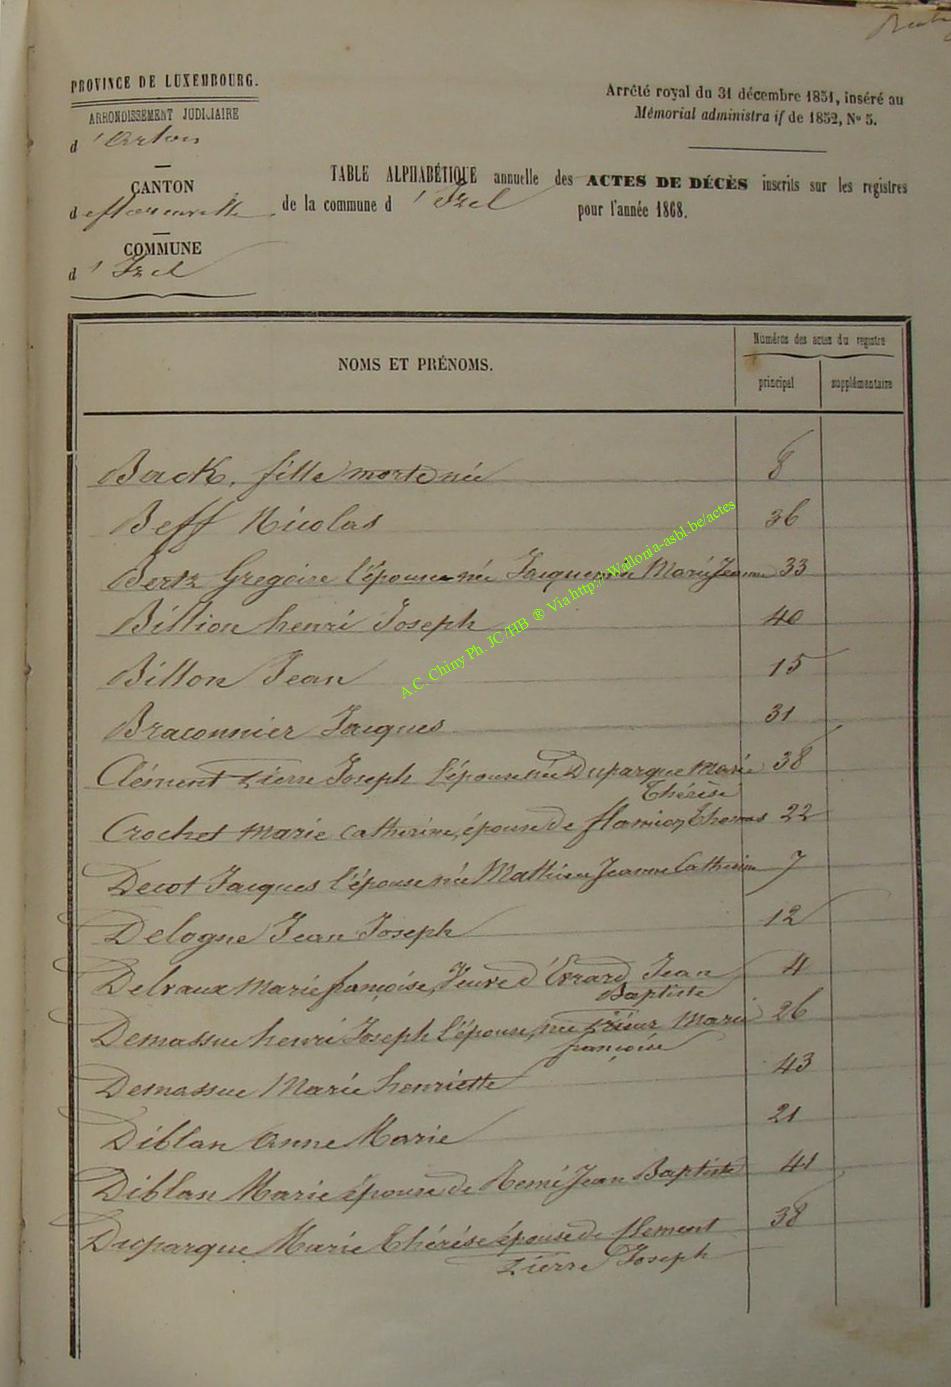 PROVINCE DE LUXEMBOURG.
ARRONDISSEMENT JUDICIAIRE
d'Arlon
CANTON
de florenville
COMMUNE
d'Izel
Arrêté royal du 31 décembre 1851, inséré au
Mémorial administra if de 1852, N° 5.
TABLE ALPHABÉTIQUE annuelle des ACTES DE DÉCÈS inscrits sur les registres
de la commune d'Izel pour l'année 1868.
NOMS ET PRÉNOMS.
Numéros des actes du registre
principal supplémentaire
Back, fille mortenée 8
Beff Nicolas 36
Bertz Gregoire l'épouse née Jacquemin Marie Jeanne 33
Billion henri Joseph 40
Billon Jean 15
Braconnier Jacques 31
Clément Pierre Joseph l'épouse née Duparque Marie 38
Thérèse
Crochet Marie Catherine, épouse de flamion Thomas 22
Decot Jacques l'épouse née Mathieu Jeanne Catherine 7
Delogne Jean Joseph 12
Delvaux Marie françoise, Veuve d'Evrard Jean 4
Baptiste
Demassue henri Joseph l'épouse, née Prieur Marie 26
françoise
Demassue Marie henriette 43
Diblan Anne Marie 21
Diblan Marie épouse de Remé Jean Baptiste 41
Duparque Marie Thérèse épouse de Clement 38
Pierre Joseph
A.C. Chiny Ph. JC/HB ® Via http://Wallonia-asbl.be/actes